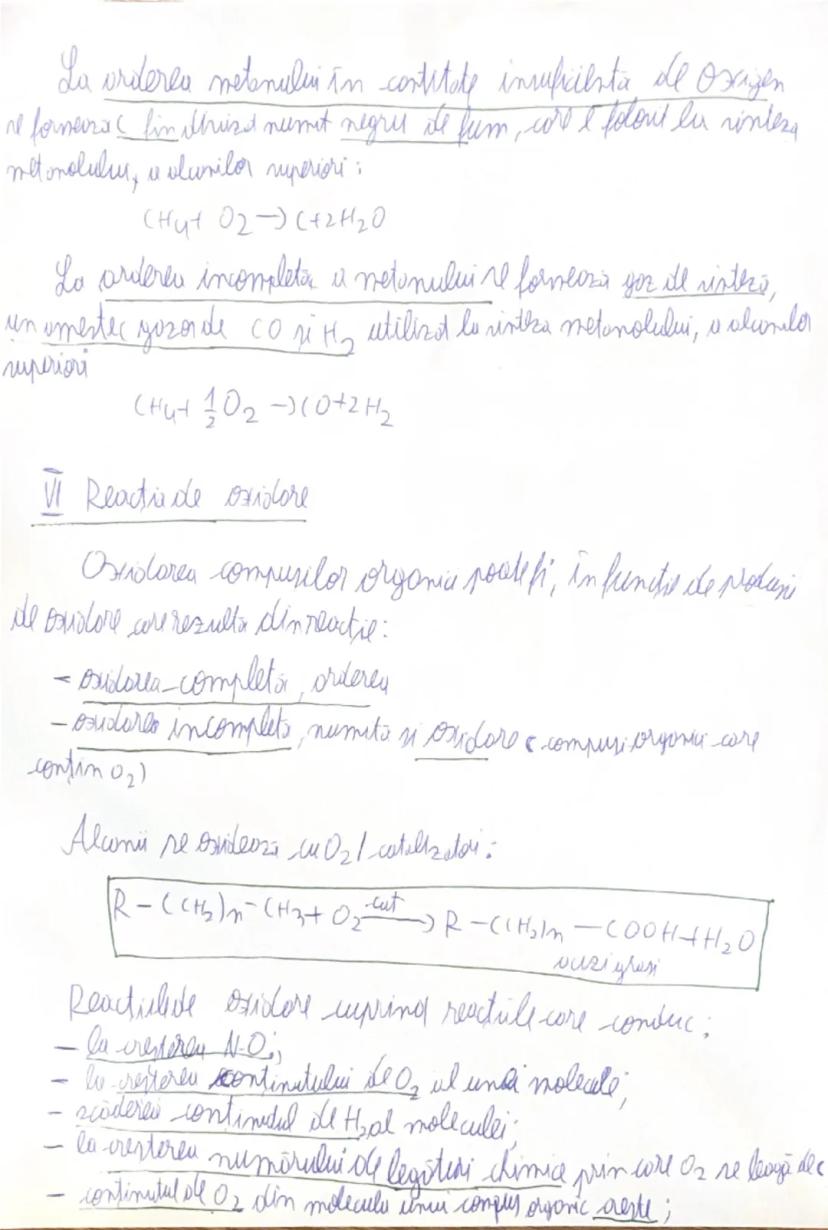 La arderea metanului în cantitate insuficientă de oxigen
se formează C fin divizat numit negru de fum, care e folosit la sinteza
metanolului, a alcanilor superiori:
CH4 + O2 → C + 2H2O
La arderea incompletă a metanului se formează gaz de sinteză,
un amestec gazos de CO și H2 utilizat la sinteza metanolului, a alcanilor
superiori
CH4 + 1/2 O2 → CO + 2H2
VI Reacția de oxidare
Oxidarea compușilor organici poate fi, în funcție de produșii
de oxidare care rezultă din reacție:
- oxidarea completă, arderea
- oxidarea incompletă, numită și oxidare (compuși organici care
conțin O2)
Alcanii se oxidează cu O2 / catalizatori:
R - (CH2)n - CH3 + O2 cat → R - (CH2)n - COOH + H2O
acizi grași
Reacțiile de oxidare cuprind reacțiile care conduc:
- la creșterea N.O.;
- la creșterea conținutului de O2 al unei molecule;
- scăderea conținutul de H2 al moleculei;
- la creșterea numărului de legături chimice prin care O2 se leagă de C
- conținutul de O2 din molecula unui compus organic crește;